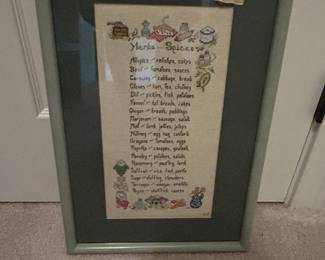 Herbs and Spices
Allspice - relishes, cakes
Basil - tomatoes, sauces
Caraway - cabbage, bread
Cloves - ham, tea, chutney
Dill - pickles, fish, potatoes
Fennel - breads, cakes
Ginger - breads, puddings
Marjoram - sausage, salad
Mint - lamb, jellies, juleps
Nutmeg - egg nog, custard
Oregano - tomatoes, eggs
Paprika - canapes, goulash
Parsley - potatoes, salads
Rosemary - poultry, lamb
Saffron - rice, paella
Sage - stuffing, chowders
Tarragon - vinegar, omelets
Thyme - shellfish, sauces